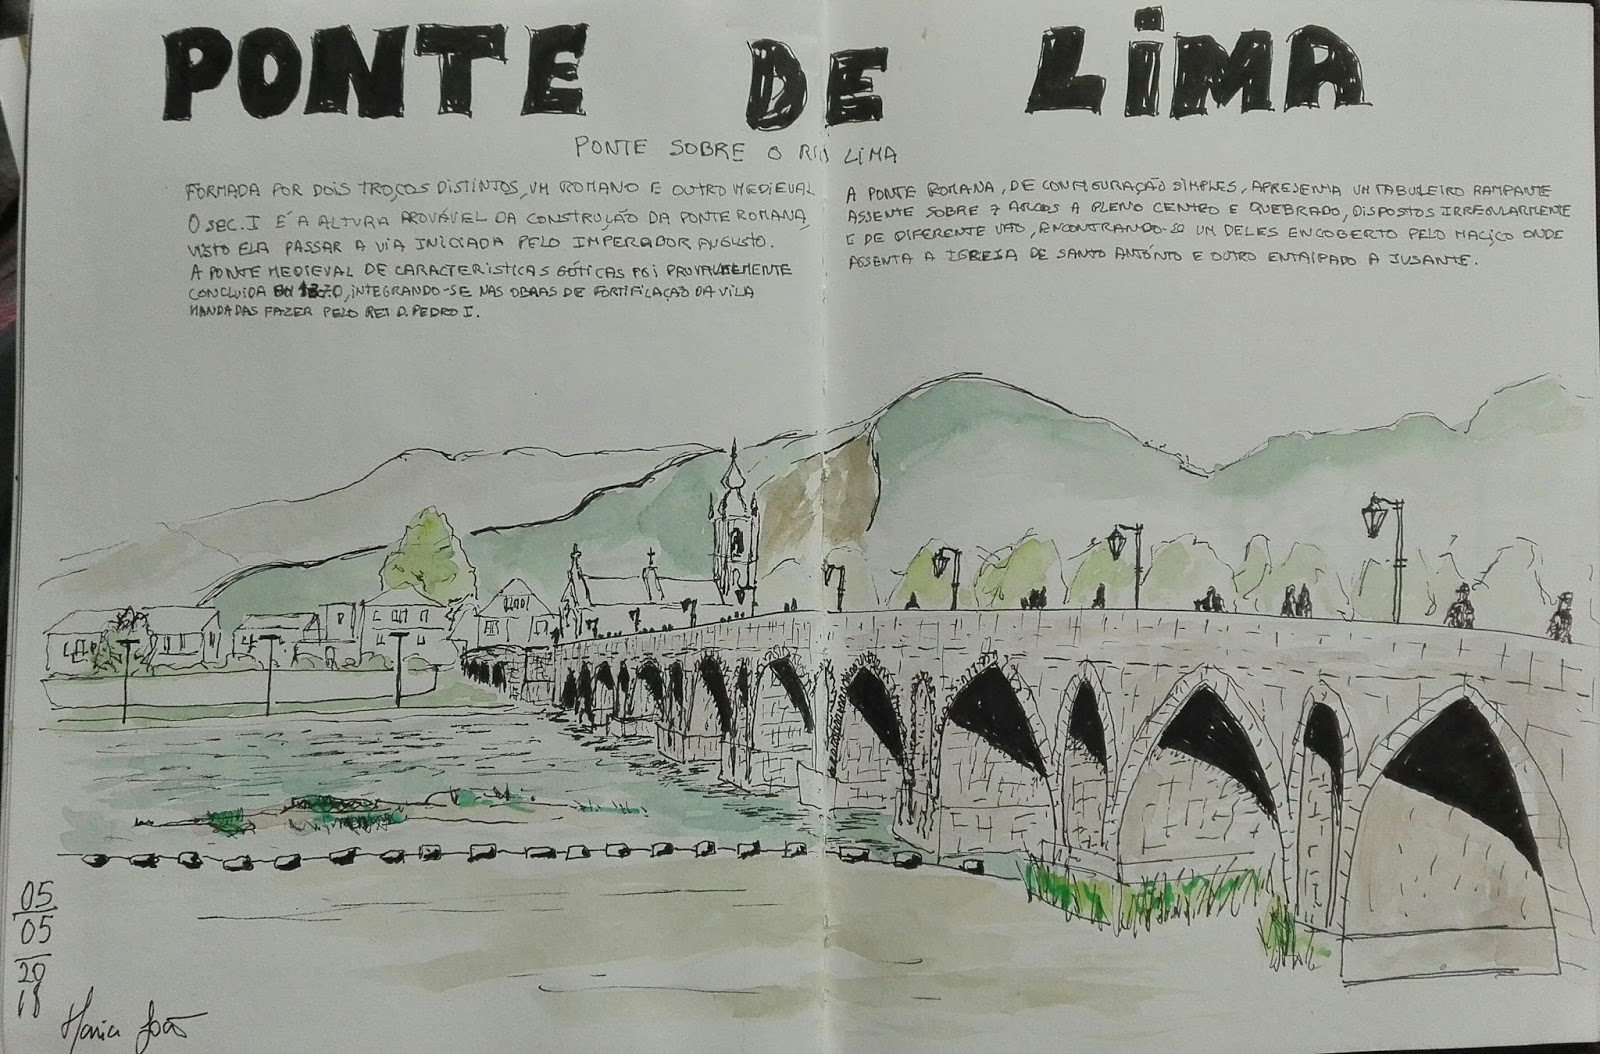 PONTE DE LIMA
PONTE SOBRE O RIO LIMA
FORMADA POR DOIS TROÇOS DISTINTOS, UM ROMANO E OUTRO MEDIEVAL
O SEC. I É A ALTURA PROVÁVEL DA CONSTRUÇÃO DA PONTE ROMANA,
VISTO ELA PASSAR A VIA INICIADA PELO IMPERADOR AUGUSTO.
A PONTE MEDIEVAL DE CARACTERISTICAS GÓTICAS FOI PROVAVELMENTE
CONCLUIDA EM 1370, INTEGRANDO-SE NAS OBRAS DE FORTIFILAÇÃO DA VILA
MANDADAS FAZER PELO REI D. PEDRO I.
A PONTE ROMANA, DE CONFIGURAÇÃO SIMPLES, APRESENTA UM TABULEIRO RAMPANTE
ASSENTE SOBRE 7 ARCOS A PLENO CENTRO E QUEBRADO, DISPOSTOS IRREGULARMENTE
E DE DIFERENTE VÃO, ENCONTRANDO-SE UM DELES ENCOBERTO PELO MACIÇO ONDE
ASSENTA A IGREJA DE SANTO ANTÓNIO E OUTRO ENTAIPADO A JUSANTE.
05
05
20
18
Maria João